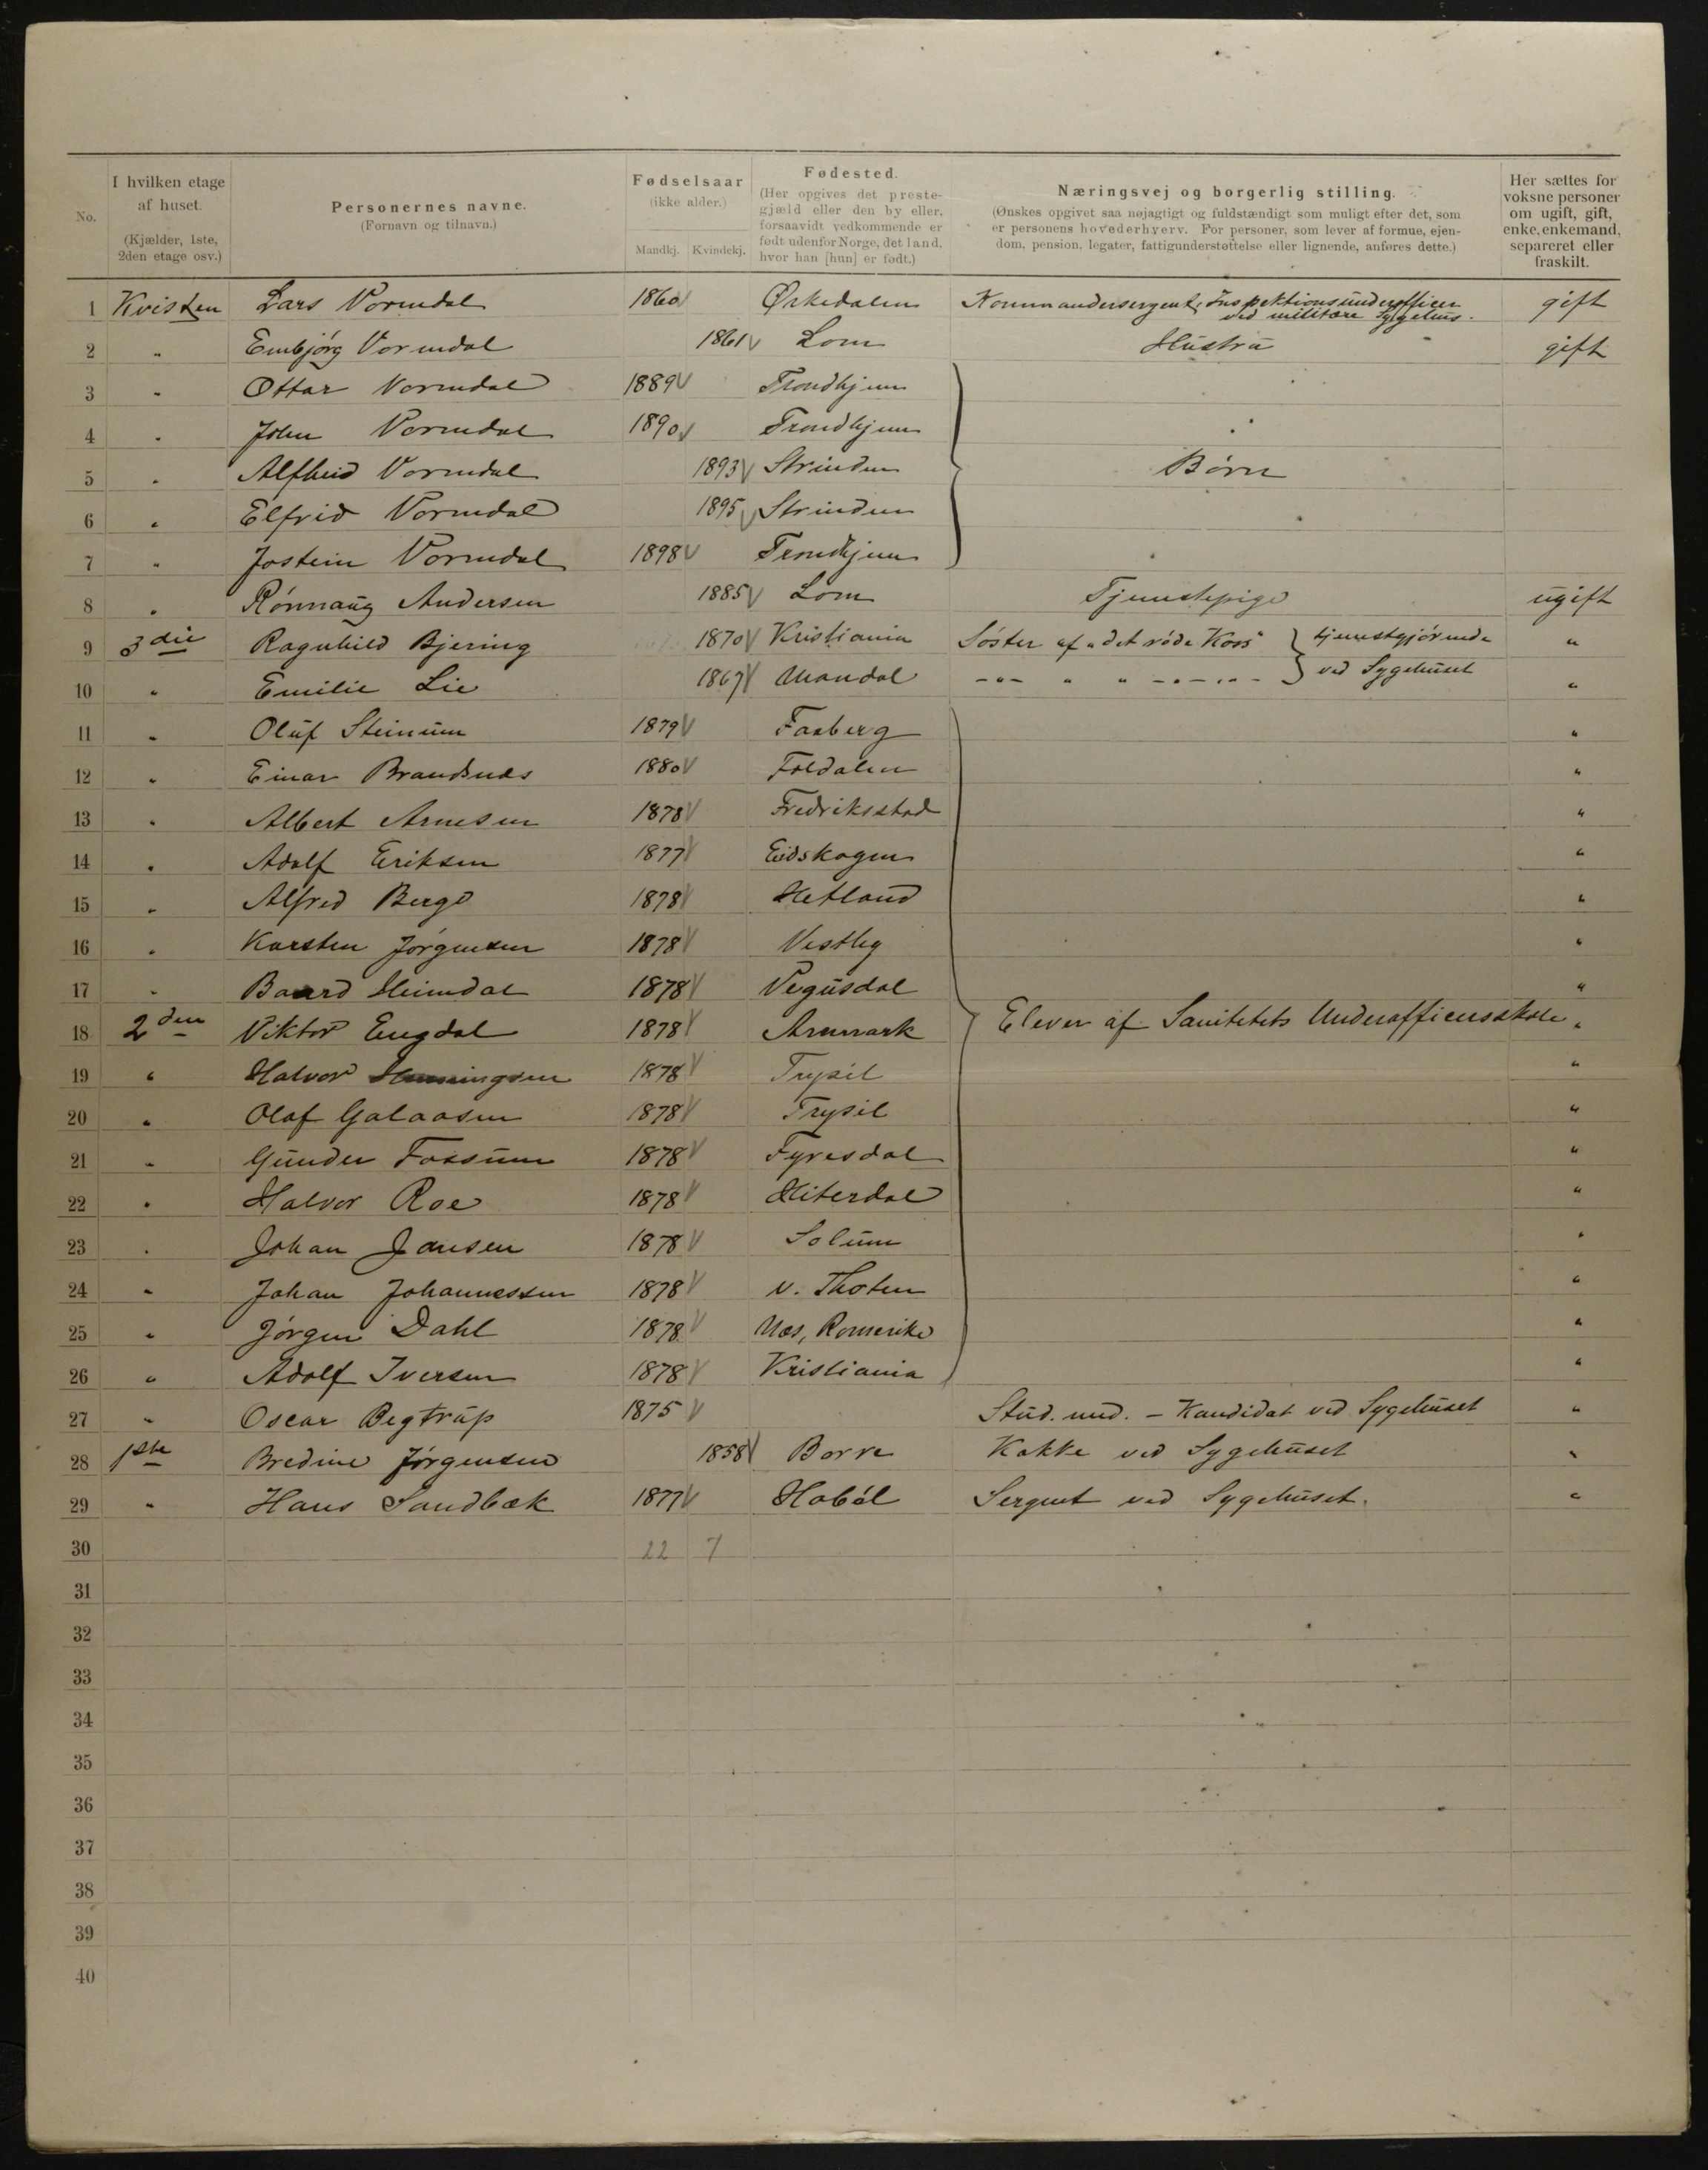 No. I hvilken etage af huset. (Kjælder, 1ste, 2den etage osv.) Personernes navne. (Fornavn og tilnavn.) Fødselsaar (ikke alder.) Mandkj. Kvindekj. Fødested. (Her opgives det prestegjæld eller den by eller, forsaavidt vedkommende er født udenfor Norge, det land, hvor han [hun] er født.) Næringsvej og borgerlig stilling. (Ønskes opgivet saa nøjagtigt og fuldstændigt som muligt efter det, som er personens hovederhverv. For personer, som lever af formue, ejendom, pension, legater, fattigunderstøttelse eller lignende, anføres dette.) Her sættes for voksne personer om ugift, gift, enke, enkemand, separeret eller fraskilt.
1 Kvisten Lars Vormdal 1860 Ørkedalen Kommandersergent, Inspektionsunderofficer ved militære Sygehus. gift
2 " Embjørg Vormdal 1861 Lom Hustru gift
3 " Ottar Vormdal 1889 Trondhjem
4 " John Vormdal 1890 Trondhjem
5 " Alfheid Vormdal 1893 Strinden Børn
6 " Elfrid Vormdal 1895 Strinden
7 " Jostein Vormdal 1898 Trondhjem
8 " Rønnaug Andersen 1885 Lom Tjenestepige ugift
9 3die Ragnhild Bjering 1870 Kristiania Søster af "det røde Kors" } tjenestgjørende "
10 " Emilie Lie 1867 Mandal -"- " " -"-"- } ved Sygehuset "
11 " Oluf Steinum 1879 Faaberg "
12 " Einar Brandsnes 1880 Foldalen "
13 " Albert Arnesen 1878 Fredriksstad "
14 " Adolf Eriksen 1877 Eidskogen "
15 " Alfred Berge 1878 Hetland "
16 " Karsten Jørgensen 1878 Vestby "
17 " Baard Heimdal 1878 Vegusdal "
18 2den Viktor Engdal 1878 Aremark Elever af Sanitetets Underofficersskole "
19 " Halvor Henningsen 1878 Trysil "
20 " Olaf Galaasen 1878 Trysil "
21 " Gunder Fossum 1878 Fyresdal "
22 " Halvor Roe 1878 Hiterdal "
23 " Johan Jansen 1878 Solum "
24 " Johan Johannessen 1878 v. Thoten "
25 " Jørgen Dahl 1878 Næs, Romerike "
26 " Adolf Iversen 1878 Kristiania "
27 " Oscar Begtrup 1875 Stud. med. - Kandidat ved Sygehuset "
28 1ste Bredine Jørgensen 1858 Borre Kokke ved Sygehuset "
29 " Hans Sandbæk 1877 Hobøl Sergent ved Sygehuset. "
30 22 7
31
32
33
34
35
36
37
38
39
40